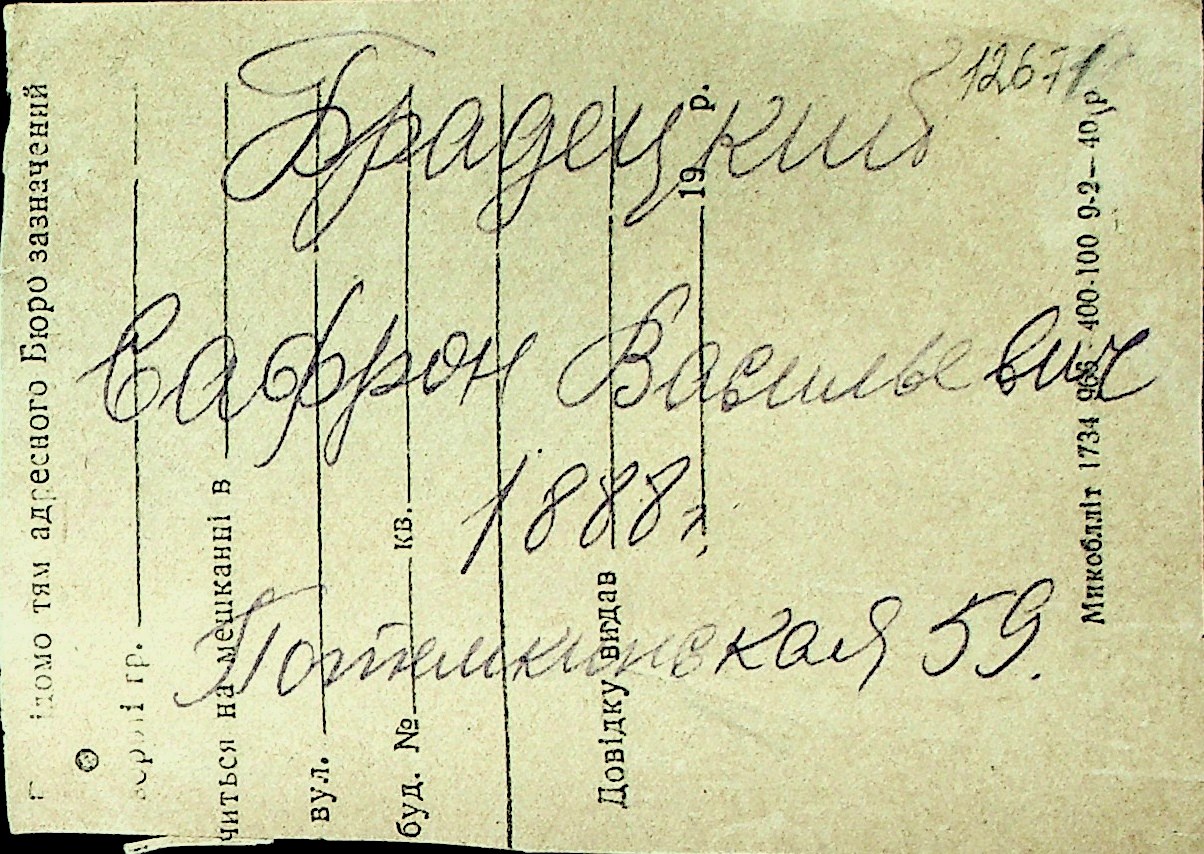 12671
Брадецкий
Сафрон Васильевич
1888 г.
Потемкинская 59.
ідомо тям адресного Бюро зазначений
гр.
читься на мешканні в
вул.
буд. № кв.
Довідку видав
19 р.
Микобліт 1734 400-100 9-2-40 р